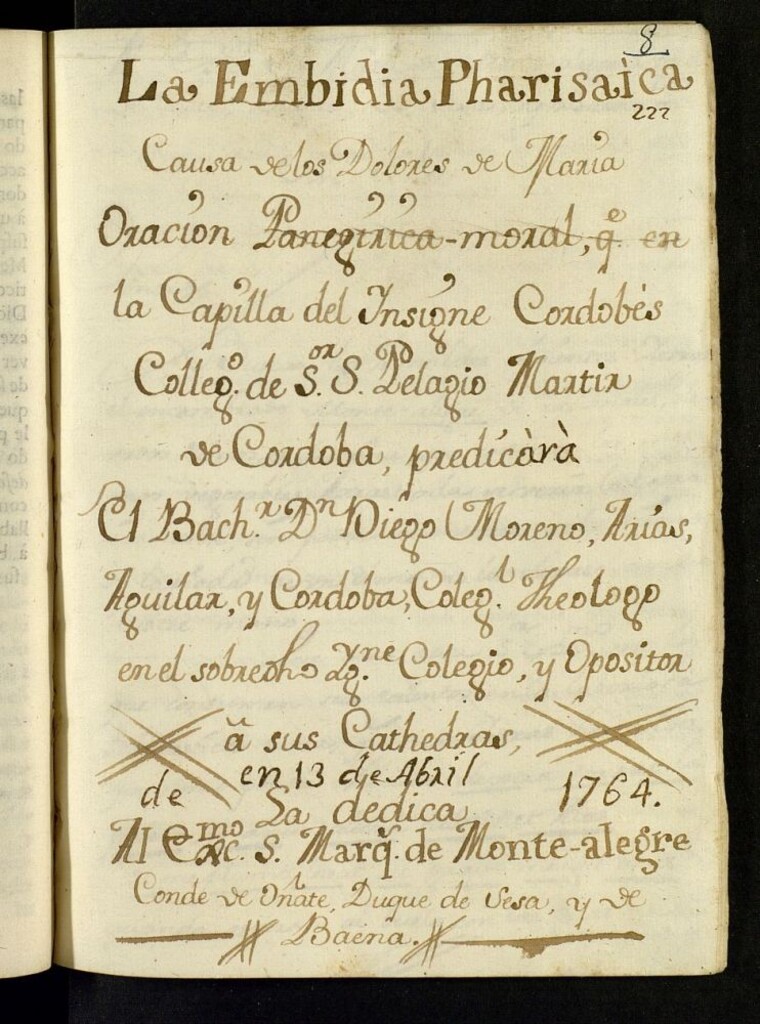 8
La Embidia Pharisaica
222
Causa de los Dolores de Maria
Oracion Panegirica-moral, q.e en
la Capilla del Insigne Cordobés
Colleg.o de S.or S. Pelagio Martir
de Cordoba, predicàrà
El Bach.r Dn Diego Moreno, Arias,
Aguilar, y Cordoba, Coleg.l Theologo
en el sobredho Yg.ne Colegio, y Opositor
â sus Cathedras,
en 13 de Abril
de 1764.
La dedica
Al Exc.mo S. Marq.s de Monte-alegre
Conde de Oñate, Duque de Sesa, y de
Baena.